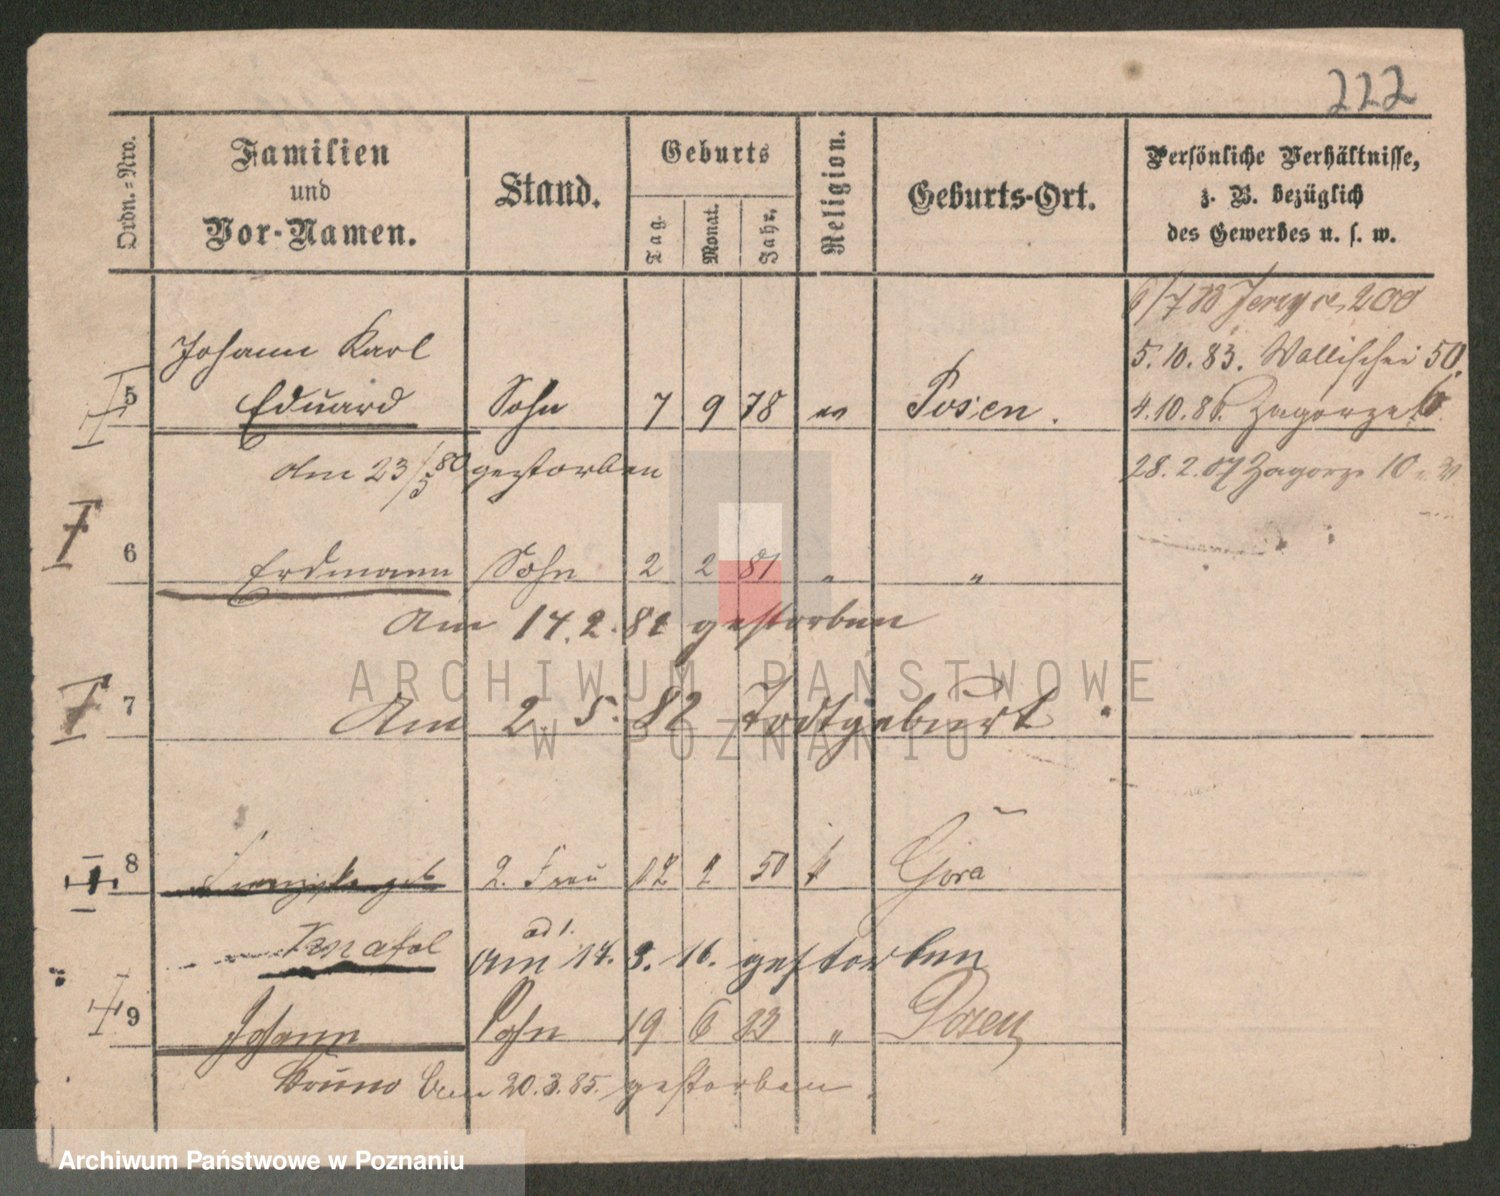 222
Ordn.-Nro.
Familien
und
Vor-Namen.
Stand.
Geburts
Tag.
Monat.
Jahr.
Religion.
Geburts-Ort.
Persönliche Verhältnisse,
z. B. bezüglich
des Gewerbes u. s. w.
200
5.10.83. Wallischei 50.
4.10.86. Zagorze 6
28.2.87 Zagorze 10
Johann Karl
5 Eduard Sohn 7 9 78 ev Posen.
Am 23/5 80 gestorben
6 Erdmann Sohn 2 2 81 " "
Am 14.2.82 gestorben
7 Am 2. 5. 82 Todtgeburt.
8 Franziska geb 2. Frau 12 2 50 k Góra
ad 1.
Am 14. 3. 16. gestorben
9 Johann Sohn 19 6 83 " Posen
Bruno Am 20.3.85. gestorben.
ARCHIWUM PAŃSTWOWE
W POZNANIU
Archiwum Państwowe w Poznaniu